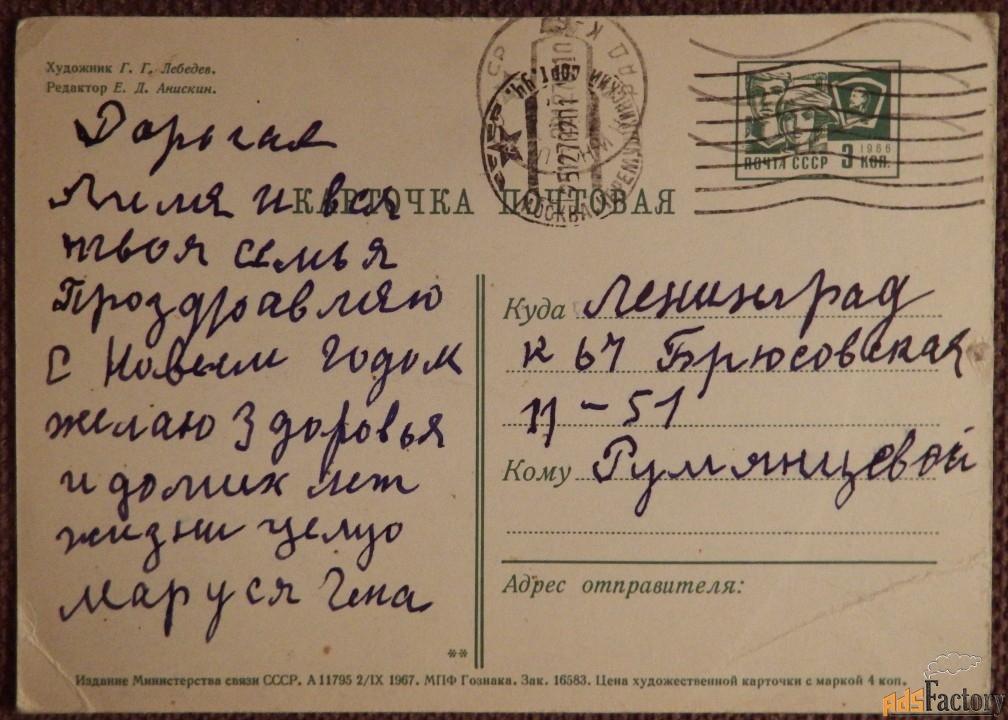 Художник Г. Г. Лебедев.
Редактор Е. Д. Анискин.
КАРТОЧКА ПОЧТОВАЯ
ПОЧТА СССР 3 КОП.
1966
Дорогая
Лиля и вся
твоя семья
Проздравляю
С Новым годом
желаю Здоровья
и долгих лет
жизни целую
Маруся Гена
Куда Ленинград
К 67 Брюсовская
11-51
Кому Румянцевой
Адрес отправителя:
**
Издание Министерства связи СССР. А 11795 2/IX 1967. МПФ Гознака. Зак. 16583. Цена художественной карточки с маркой 4 коп.
AdsFactory